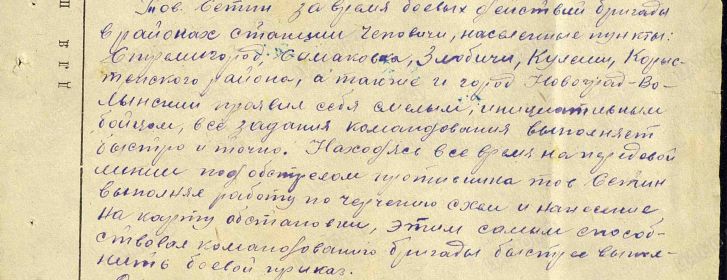 Тов. Сетин за время боевых действий бригады
в районах станции Чеповичи, населенные пункты:
Стремигород, Злобичи, Купеци, Корыс-
тенского района, а также и город Новоград-Во-
лынский проявил себя смелым, инициативным
бойцом, все задания командования выполняет
быстро и точно. Находясь все время на передовой
линии под обстрелом противника тов Сетин
выполнял работу по черчению схем и нанесение
на карту обстановки, этим самым способ-
ствовал командованию бригады быстрее выпол-
нить боевой приказ.